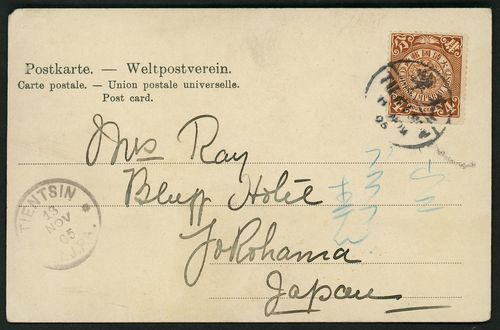 Postkarte. — Weltpostverein.
Carte postale. — Union postale universelle.
Post card.
Mrs Ray
Bluff Hotel
Yokohama
Japan
TIENTSIN
13
NOV
05
I.J.P.A.